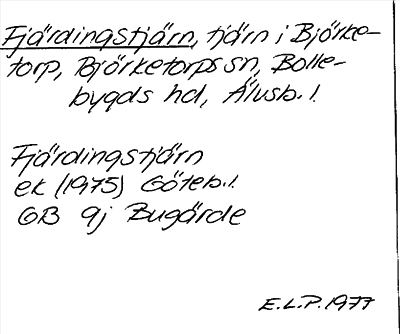 Fjärdingstjärn, tjärn i Björke-
torp, Björketorps sn, Bolle-
bygds hd, Älvsb. l.
Fjärdingstjärn
ek (1975) Göteb. l.
GB 9j Bugärde
E.L.P. 1977